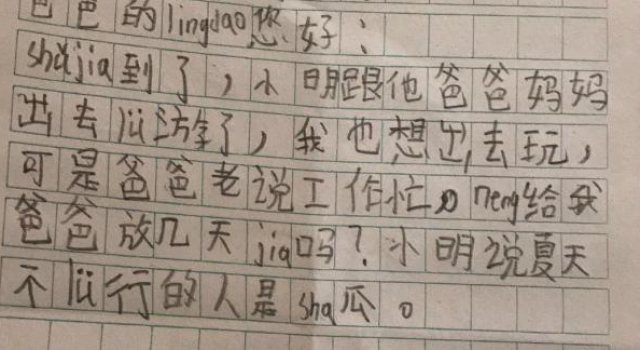 爸爸的lingdao您好：
shǔjia到了，小明跟他爸爸妈妈
出去lǚ游了，我也想出去玩，
可是爸爸老说工作忙。neng给我
爸爸放几天jia吗？小明说夏天
不lǚ行的人是sha瓜。